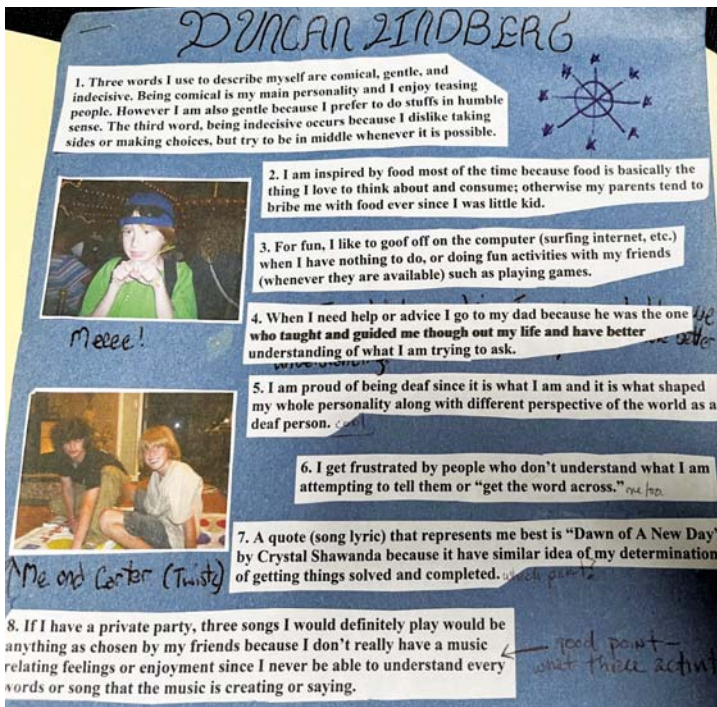 DUNCAN LINDBERG
1. Three words I use to describe myself are comical, gentle, and
indecisive. Being comical is my main personality and I enjoy teasing
people. However I am also gentle because I prefer to do stuffs in humble
sense. The third word, being indecisive occurs because I dislike taking
sides or making choices, but try to be in middle whenever it is possible.
2. I am inspired by food most of the time because food is basically the
thing I love to think about and consume; otherwise my parents tend to
bribe me with food ever since I was little kid.
3. For fun, I like to goof off on the computer (surfing internet, etc.)
when I have nothing to do, or doing fun activities with my friends
(whenever they are available) such as playing games.
Meeee!
4. When I need help or advice I go to my dad because he was the one
who taught and guided me though out my life and have better
understanding of what I am trying to ask.
better
5. I am proud of being deaf since it is what I am and it is what shaped
my whole personality along with different perspective of the world as a
deaf person. cool
6. I get frustrated by people who don't understand what I am
attempting to tell them or "get the word across." me too
7. A quote (song lyric) that represents me best is "Dawn of A New Day"
by Crystal Shawanda because it have similar idea of my determination
of getting things solved and completed. which part?
↑Me and Carter (Twistz)
8. If I have a private party, three songs I would definitely play would be
anything as chosen by my friends because I don't really have a music
relating feelings or enjoyment since I never be able to understand every
words or song that the music is creating or saying.
← good point–
what three activit